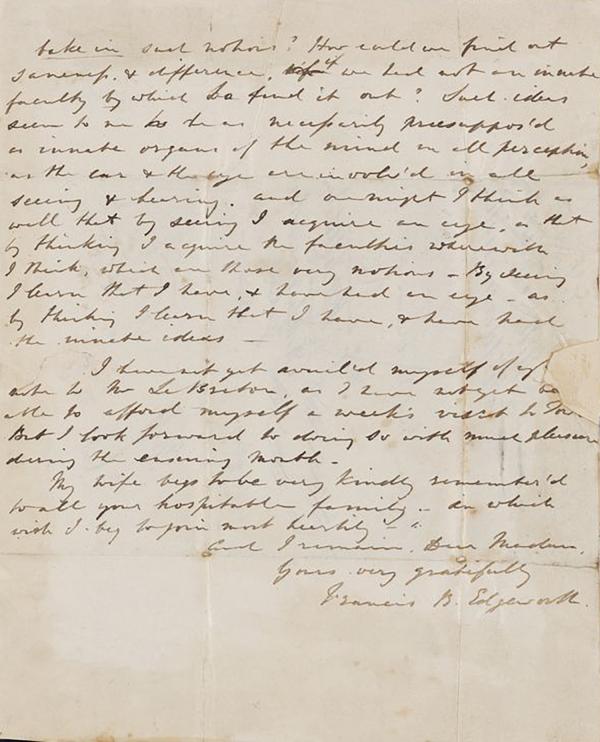 take in such notions? How could we find out
sameness & difference, if we had not an innate
faculty by which to find it out? Such ideas
seem to me to be as necessarily presuppos'd
as innate organs of the mind in all perception,
as the ear & the eye are involv'd in all
seeing & hearing. and one might I think as
well that by seeing I acquire an eye, as that
by thinking I acquire the faculties wherewith
I think, which are those very notions – By seeing
I learn that I have, & have had an eye – as
by thinking I learn that I have, & have had
the innate ideas –
I have not yet avail'd myself of
note to Mr Le Breton, as I have not yet be
able to afford myself a week's visit to
But I look forward to doing so with much pleasure
during the ensuing month –
My wife begs to be very kindly remember'd
to all your hospitable family – in which
wish I beg to join most heartily –
And I remain, Dear Madam,
Yours very gratefully
Francis B. Edgeworth.